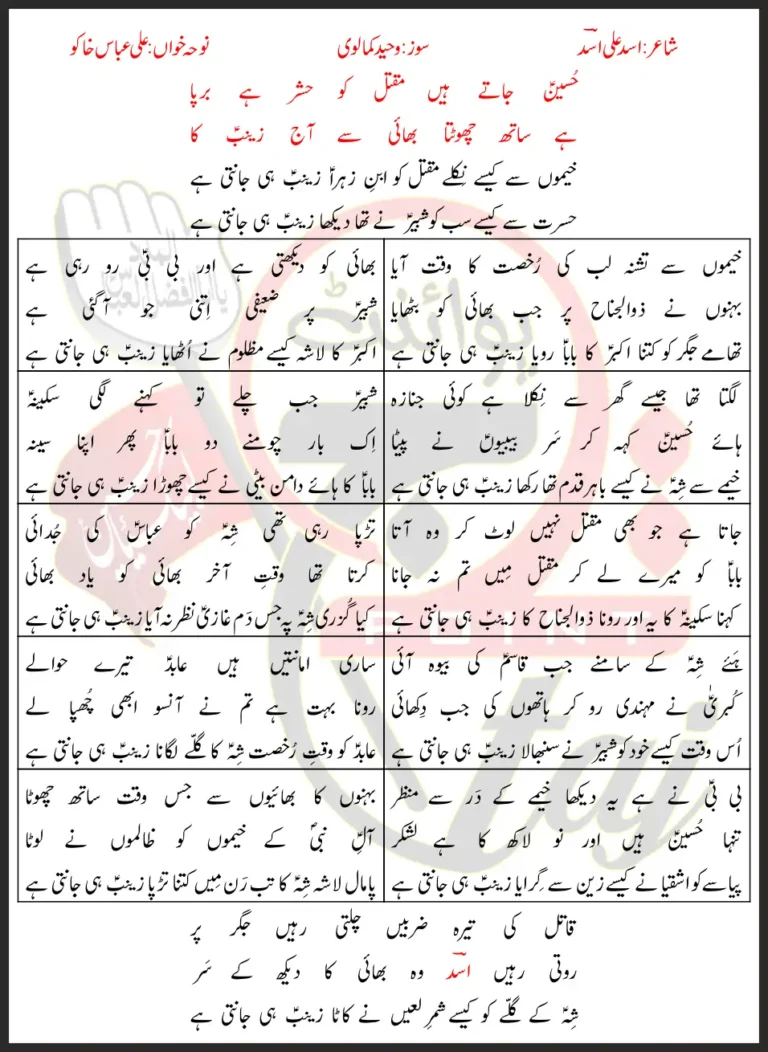 شاعر: اسد علی اسدؔ
سوز: وحید کمالوی
نوحہ خواں: علی عباس خاکو
حُسینؑ جاتے ہیں مقتل کو حشر ہے برپا
ہے ساتھ چھوٹتا بھائی سے آج زینبؑ کا
خیموں سے کیسے نِکلے مقتل کو ابنِ زہراؑ زینبؑ ہی جانتی ہے
حسرت سے کیسے سب کو شبیرؑ نے تھا دیکھا زینبؑ ہی جانتی ہے
خیموں سے تشنہ لب کی رُخصت کا وقت آیا
بہنوں نے ذوالجناح پر جب بھائی کو بٹھایا
تھامے جگر کو کتنا اکبرؑ کا باباؑ رویا زینبؑ ہی جانتی ہے
بھائی کو دیکھتی ہے اور بی بیؑ رو رہی ہے
شبیرؑ پر ضعیفی اِتنی جو آ گئی ہے
اکبرؑ کا لاشہ کیسے مظلوم نے اُٹھایا زینبؑ ہی جانتی ہے
لگتا تھا جیسے گھر سے نِکلا ہے کوئی جنازہ
ہائے حُسینؑ کہہ کر سَر بیبیوںؑ نے پیٹا
خیمے سے شِہؑ نے کیسے باہر قدم تھا رکھا زینبؑ ہی جانتی ہے
شبیرؑ جب چلے تو کہنے لگی سکینہؑ
اِک بار چومنے دو باباؑ پھر اپنا سینہ
باباؑ کا ہائے دامن بیٹی نے کیسے چھوڑا زینبؑ ہی جانتی ہے
جاتا ہے جو بھی مقتل نہیں لوٹ کر وہ آتا
باباؑ کو میرے لے کر مقتل مِیں تم نہ جانا
کہنا سکینہؑ کا یہ اور رونا ذوالجناح کا زینبؑ ہی جانتی ہے
تڑپا رہی تھی شِہؑ کو عباسؑ کی جُدائی
کرتا تھا وقتِ آخر بھائی کو یاد بھائی
کیا گُزری شِہؑ پہ جس دَم غازیؑ نظر نہ آیا زینبؑ ہی جانتی ہے
ہَئے شِہؑ کے سامنے جب قاسمؑ کی بیوہ آئی
کُبریٰؑ نے مہندی رو کر ہاتھوں کی جب دِکھائی
اُس وقت کیسے خود کو شبیرؑ نے سنبھالا زینبؑ ہی جانتی ہے
ساری امانتیں ہیں عابدؑ تیرے حوالے
رونا بہت ہے تم نے آنسو ابھی چُھپا لے
عابدؑ کو وقتِ رُخصت شِہؑ کا گلّے لگانا زینبؑ ہی جانتی ہے
بی بیؑ نے ہے یہ دیکھا خیمے کے دَر سے منظر
تنہا حُسینؑ ہیں اور نو لاکھ کا ہے لشکر
پیاسے کو اشقیا نے کیسے زین سے گِرایا زینبؑ ہی جانتی ہے
بہنوں کا بھائیوں سے جس وقت ساتھ چھوٹا
آلِ نبیؐ کے خیموں کو ظالموں نے لوٹا
پامال لاشہ شِہؑ کا تب رَن مِیں کتنا تڑپا زینبؑ ہی جانتی ہے
قاتل کی تیرہ ضربیں چلتی رہیں جگر پر
روتی رہیں اسدؔ وہ بھائی کا دیکھ کے سَر
شِہؑ کے گلّے کو کیسے شمرِ لعیں نے کاٹا زینبؑ ہی جانتی ہے
پوائنٹ
POINT
taj